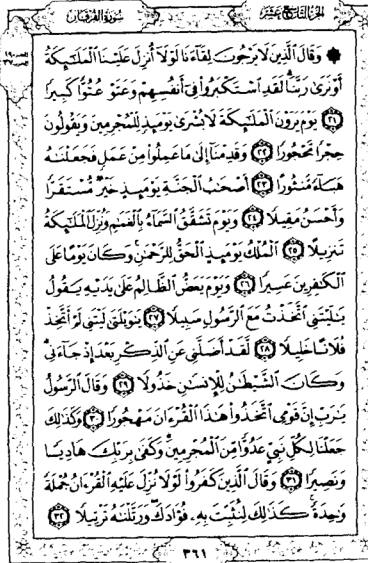 الجزء التاسع عشر
سورة الفرقان
۞ وَقَالَ ٱلَّذِينَ لَا يَرْجُونَ لِقَآءَنَا لَوْلَآ أُنزِلَ عَلَيْنَا ٱلْمَلَٰٓئِكَةُ
أَوْ نَرَىٰ رَبَّنَا لَقَدِ ٱسْتَكْبَرُوا۟ فِىٓ أَنفُسِهِمْ وَعَتَوْ عُتُوًّا كَبِيرًا
٢١ يَوْمَ يَرَوْنَ ٱلْمَلَٰٓئِكَةَ لَا بُشْرَىٰ يَوْمَئِذٍ لِّلْمُجْرِمِينَ وَيَقُولُونَ
حِجْرًا مَّحْجُورًا ٢٢ وَقَدِمْنَآ إِلَىٰ مَا عَمِلُوا۟ مِنْ عَمَلٍ فَجَعَلْنَٰهُ
هَبَآءً مَّنثُورًا ٢٣ أَصْحَٰبُ ٱلْجَنَّةِ يَوْمَئِذٍ خَيْرٌ مُّسْتَقَرًّا
وَأَحْسَنُ مَقِيلًا ٢٤ وَيَوْمَ تَشَقَّقُ ٱلسَّمَآءُ بِٱلْغَمَٰمِ وَنُزِّلَ ٱلْمَلَٰٓئِكَةُ
تَنزِيلًا ٢٥ ٱلْمُلْكُ يَوْمَئِذٍ ٱلْحَقُّ لِلرَّحْمَٰنِ وَكَانَ يَوْمًا عَلَى
ٱلْكَٰفِرِينَ عَسِيرًا ٢٦ وَيَوْمَ يَعَضُّ ٱلظَّالِمُ عَلَىٰ يَدَيْهِ يَقُولُ
يَٰلَيْتَنِى ٱتَّخَذْتُ مَعَ ٱلرَّسُولِ سَبِيلًا ٢٧ يَٰوَيْلَتَىٰ لَيْتَنِى لَمْ أَتَّخِذْ
فُلَانًا خَلِيلًا ٢٨ لَّقَدْ أَضَلَّنِى عَنِ ٱلذِّكْرِ بَعْدَ إِذْ جَآءَنِى
وَكَانَ ٱلشَّيْطَٰنُ لِلْإِنسَٰنِ خَذُولًا ٢٩ وَقَالَ ٱلرَّسُولُ
يَٰرَبِّ إِنَّ قَوْمِى ٱتَّخَذُوا۟ هَٰذَا ٱلْقُرْءَانَ مَهْجُورًا ٣٠ وَكَذَٰلِكَ
جَعَلْنَا لِكُلِّ نَبِىٍّ عَدُوًّا مِّنَ ٱلْمُجْرِمِينَ وَكَفَىٰ بِرَبِّكَ هَادِيًا
وَنَصِيرًا ٣١ وَقَالَ ٱلَّذِينَ كَفَرُوا۟ لَوْلَا نُزِّلَ عَلَيْهِ ٱلْقُرْءَانُ جُمْلَةً
وَٰحِدَةً كَذَٰلِكَ لِنُثَبِّتَ بِهِۦ فُؤَادَكَ وَرَتَّلْنَٰهُ تَرْتِيلًا ٣٢
٣٦١